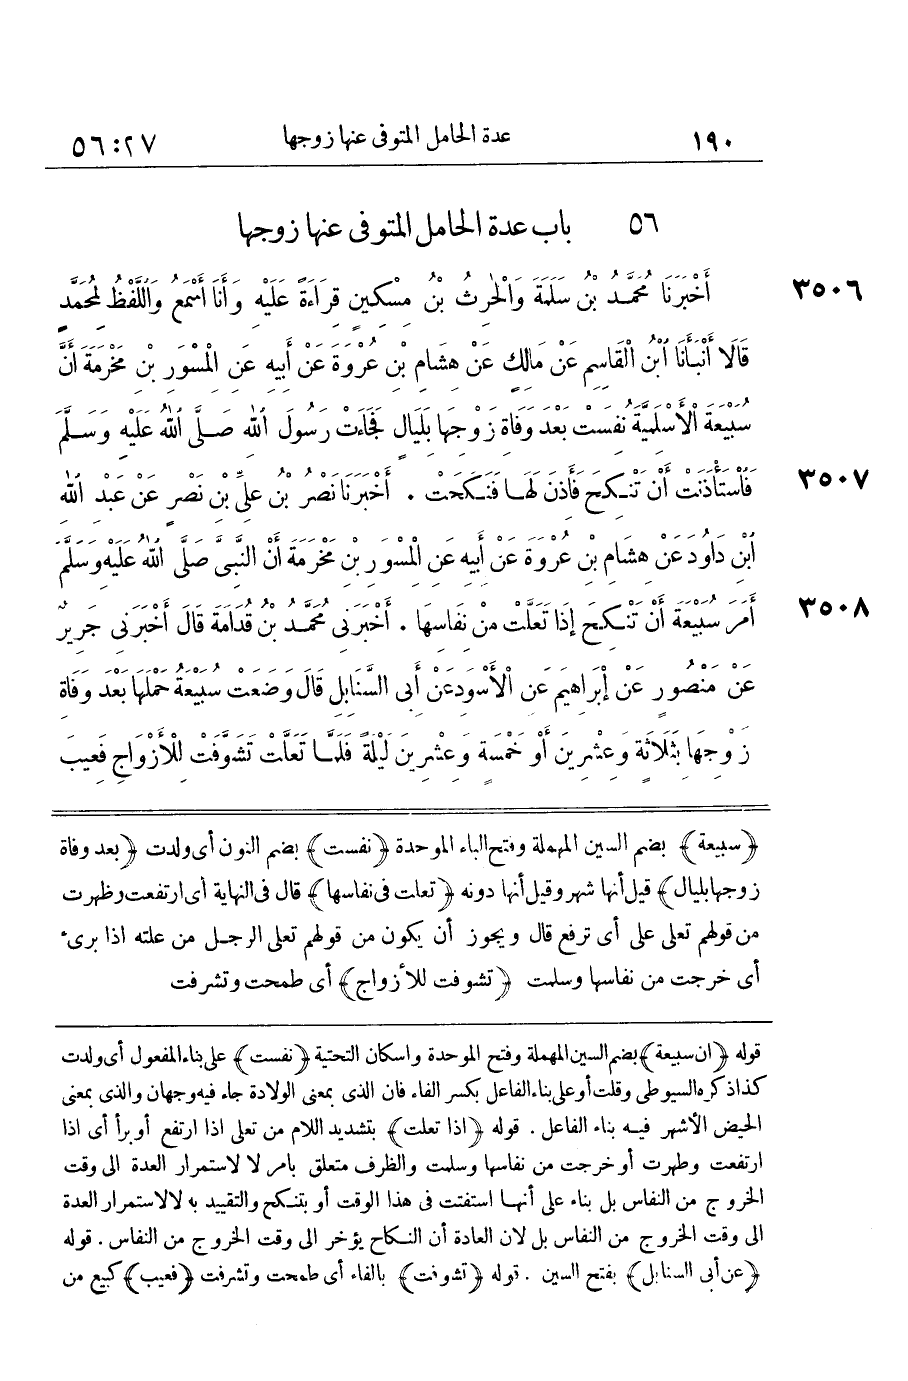 ١٩٠ عدة الحامل المتوفى عنها زوجها ٢٧ : ٥٦
٥٦ باب عدة الحامل المتوفى عنها زوجها
٣٥٠٦ أَخْبَرَنَا مُحَمَّدُ بْنُ سَلَمَةَ وَالْحَرِثُ بْنُ مِسْكِينٍ قِرَاءَةً عَلَيْهِ وَأَنَا أَسْمَعُ وَاللَّفْظُ لِمُحَمَّدٍ
قَالَا أَنْبَأَنَا ابْنُ الْقَاسِمِ عَنْ مَالِكٍ عَنْ هِشَامِ بْنِ عُرْوَةَ عَنْ أَبِيهِ عَنِ الْمِسْوَرِ بْنِ مَخْرَمَةَ أَنَّ
سُبَيْعَةَ الْأَسْلَمِيَّةَ نُفِسَتْ بَعْدَ وَفَاةِ زَوْجِهَا بِلَيَالٍ فَجَاءَتْ رَسُولَ اللهِ صَلَّى اللهُ عَلَيْهِ وَسَلَّمَ
٣٥٠٧ فَاسْتَأْذَنَتْ أَنْ تَنْكِحَ فَأَذِنَ لَهَا فَنَكَحَتْ . أَخْبَرَنَا نَصْرُ بْنُ عَلِيِّ بْنِ نَصْرٍ عَنْ عَبْدِ اللهِ
ابْنِ دَاوُدَ عَنْ هِشَامِ بْنِ عُرْوَةَ عَنْ أَبِيهِ عَنِ الْمِسْوَرِ بْنِ مَخْرَمَةَ أَنَّ النَّبِيَّ صَلَّى اللهُ عَلَيْهِ وَسَلَّمَ
٣٥٠٨ أَمَرَ سُبَيْعَةَ أَنْ تَنْكِحَ إِذَا تَعَلَّتْ مِنْ نِفَاسِهَا . أَخْبَرَنِي مُحَمَّدُ بْنُ قُدَامَةَ قَالَ أَخْبَرَنِي جَرِيرٌ
عَنْ مَنْصُورٍ عَنْ إِبْرَاهِيمَ عَنِ الْأَسْوَدِ عَنْ أَبِي السَّنَابِلِ قَالَ وَضَعَتْ سُبَيْعَةُ حَمْلَهَا بَعْدَ وَفَاةِ
زَوْجِهَا بِثَلَاثَةٍ وَعِشْرِينَ أَوْ خَمْسَةٍ وَعِشْرِينَ لَيْلَةً فَلَمَّا تَعَلَّتْ تَشَوَّفَتْ لِلْأَزْوَاجِ فَعِيبَ
﴿سبيعة﴾ بضم السين المهملة وفتح الباء الموحدة ﴿نفست﴾ بضم النون أى ولدت ﴿بعد وفاة
زوجها بليال﴾ قيل أنها شهر وقيل أنها دونه ﴿تعلت فى نفاسها﴾ قال فى النهاية أى ارتفعت وظهرت
من قولهم تعلى على أى ترفع قال ويجوز أن يكون من قولهم تعلى الرجل من علته اذا برىء
أى خرجت من نفاسها وسلمت ﴿تشوفت للأزواج﴾ أى طمحت وتشرفت
قوله ﴿ان سبيعة﴾ بضم السين المهملة وفتح الموحدة واسكان التحتية ﴿نفست﴾ على بناء المفعول أى ولدت
كذا ذكره السيوطى وقلت أو على بناء الفاعل بكسر الفاء فان الذى بمعنى الولادة جاء فيه وجهان والذى بمعنى
الحيض الأشهر فيه بناء الفاعل . قوله ﴿اذا تعلت﴾ بتشديد اللام من تعلى اذا ارتفع أو برأ أى اذا
ارتفعت وطهرت أو خرجت من نفاسها وسلمت والظرف متعلق بامر لا لاستمرار العدة الى وقت
الخروج من النفاس بل بناء على أنها استفتت فى هذا الوقت أو بتنكح والتقييد به لا لاستمرار العدة
الى وقت الخروج من النفاس بل لان العادة أن النكاح يؤخر الى وقت الخروج من النفاس . قوله
﴿عن أبى السنابل﴾ بفتح السين . قوله ﴿تشوفت﴾ بالفاء أى طمحت وتشرفت ﴿فعيب﴾ كبيع من